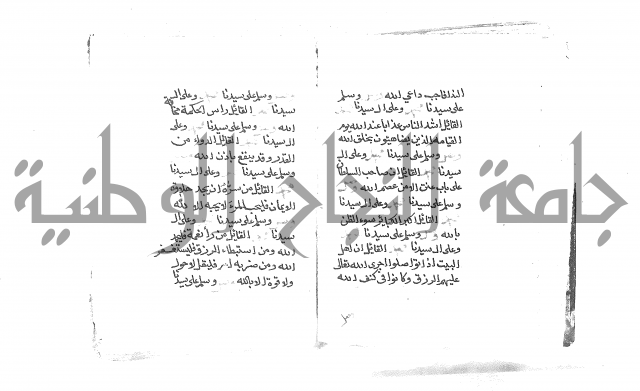 النداء فاجب داعي الله وسلم
على سيدنا وعلى ال سيدنا
القائل اشد الناس عذابا عند الله يوم
القيامة الذين يضاهئون بخلق الله
وسلم على سيدنا وعلى ال
سيدنا القائل ان صاحب السلطان
على باب عنت الا من عصم الله
وسلم على سيدنا وعلى ال سيدنا
القائل اكبر الكبائر سوء الظن
بالله وسلم على سيدنا
وعلى ال سيدنا القائل ان اهل
البيت اذا تواصلوا اجرى الله تعالى
عليهم الرزق وكانوا في كنف الله
وسلم على سيدنا وعلى ال
سيدنا القائل راس الحكمة مخافة
الله وسلم على سيدنا وعلى
ال سيدنا القائل الدواء من
القدر وقد ينفع باذن الله
وسلم على سيدنا وعلى ال سيدنا
القائل من سره ان يجد حلاوة
الايمان فليحب المرء لا يحبه الا لله
وسلم على سيدنا وعلى ال
سيدنا القائل من نعمة فليحمد
الله ومن استبطاء الرزق فليستغفر
الله ومن حزبه امر فليقل لا حول
ولا قوة الا بالله وسلم على سيدنا
جامعة النجاح الوطنية